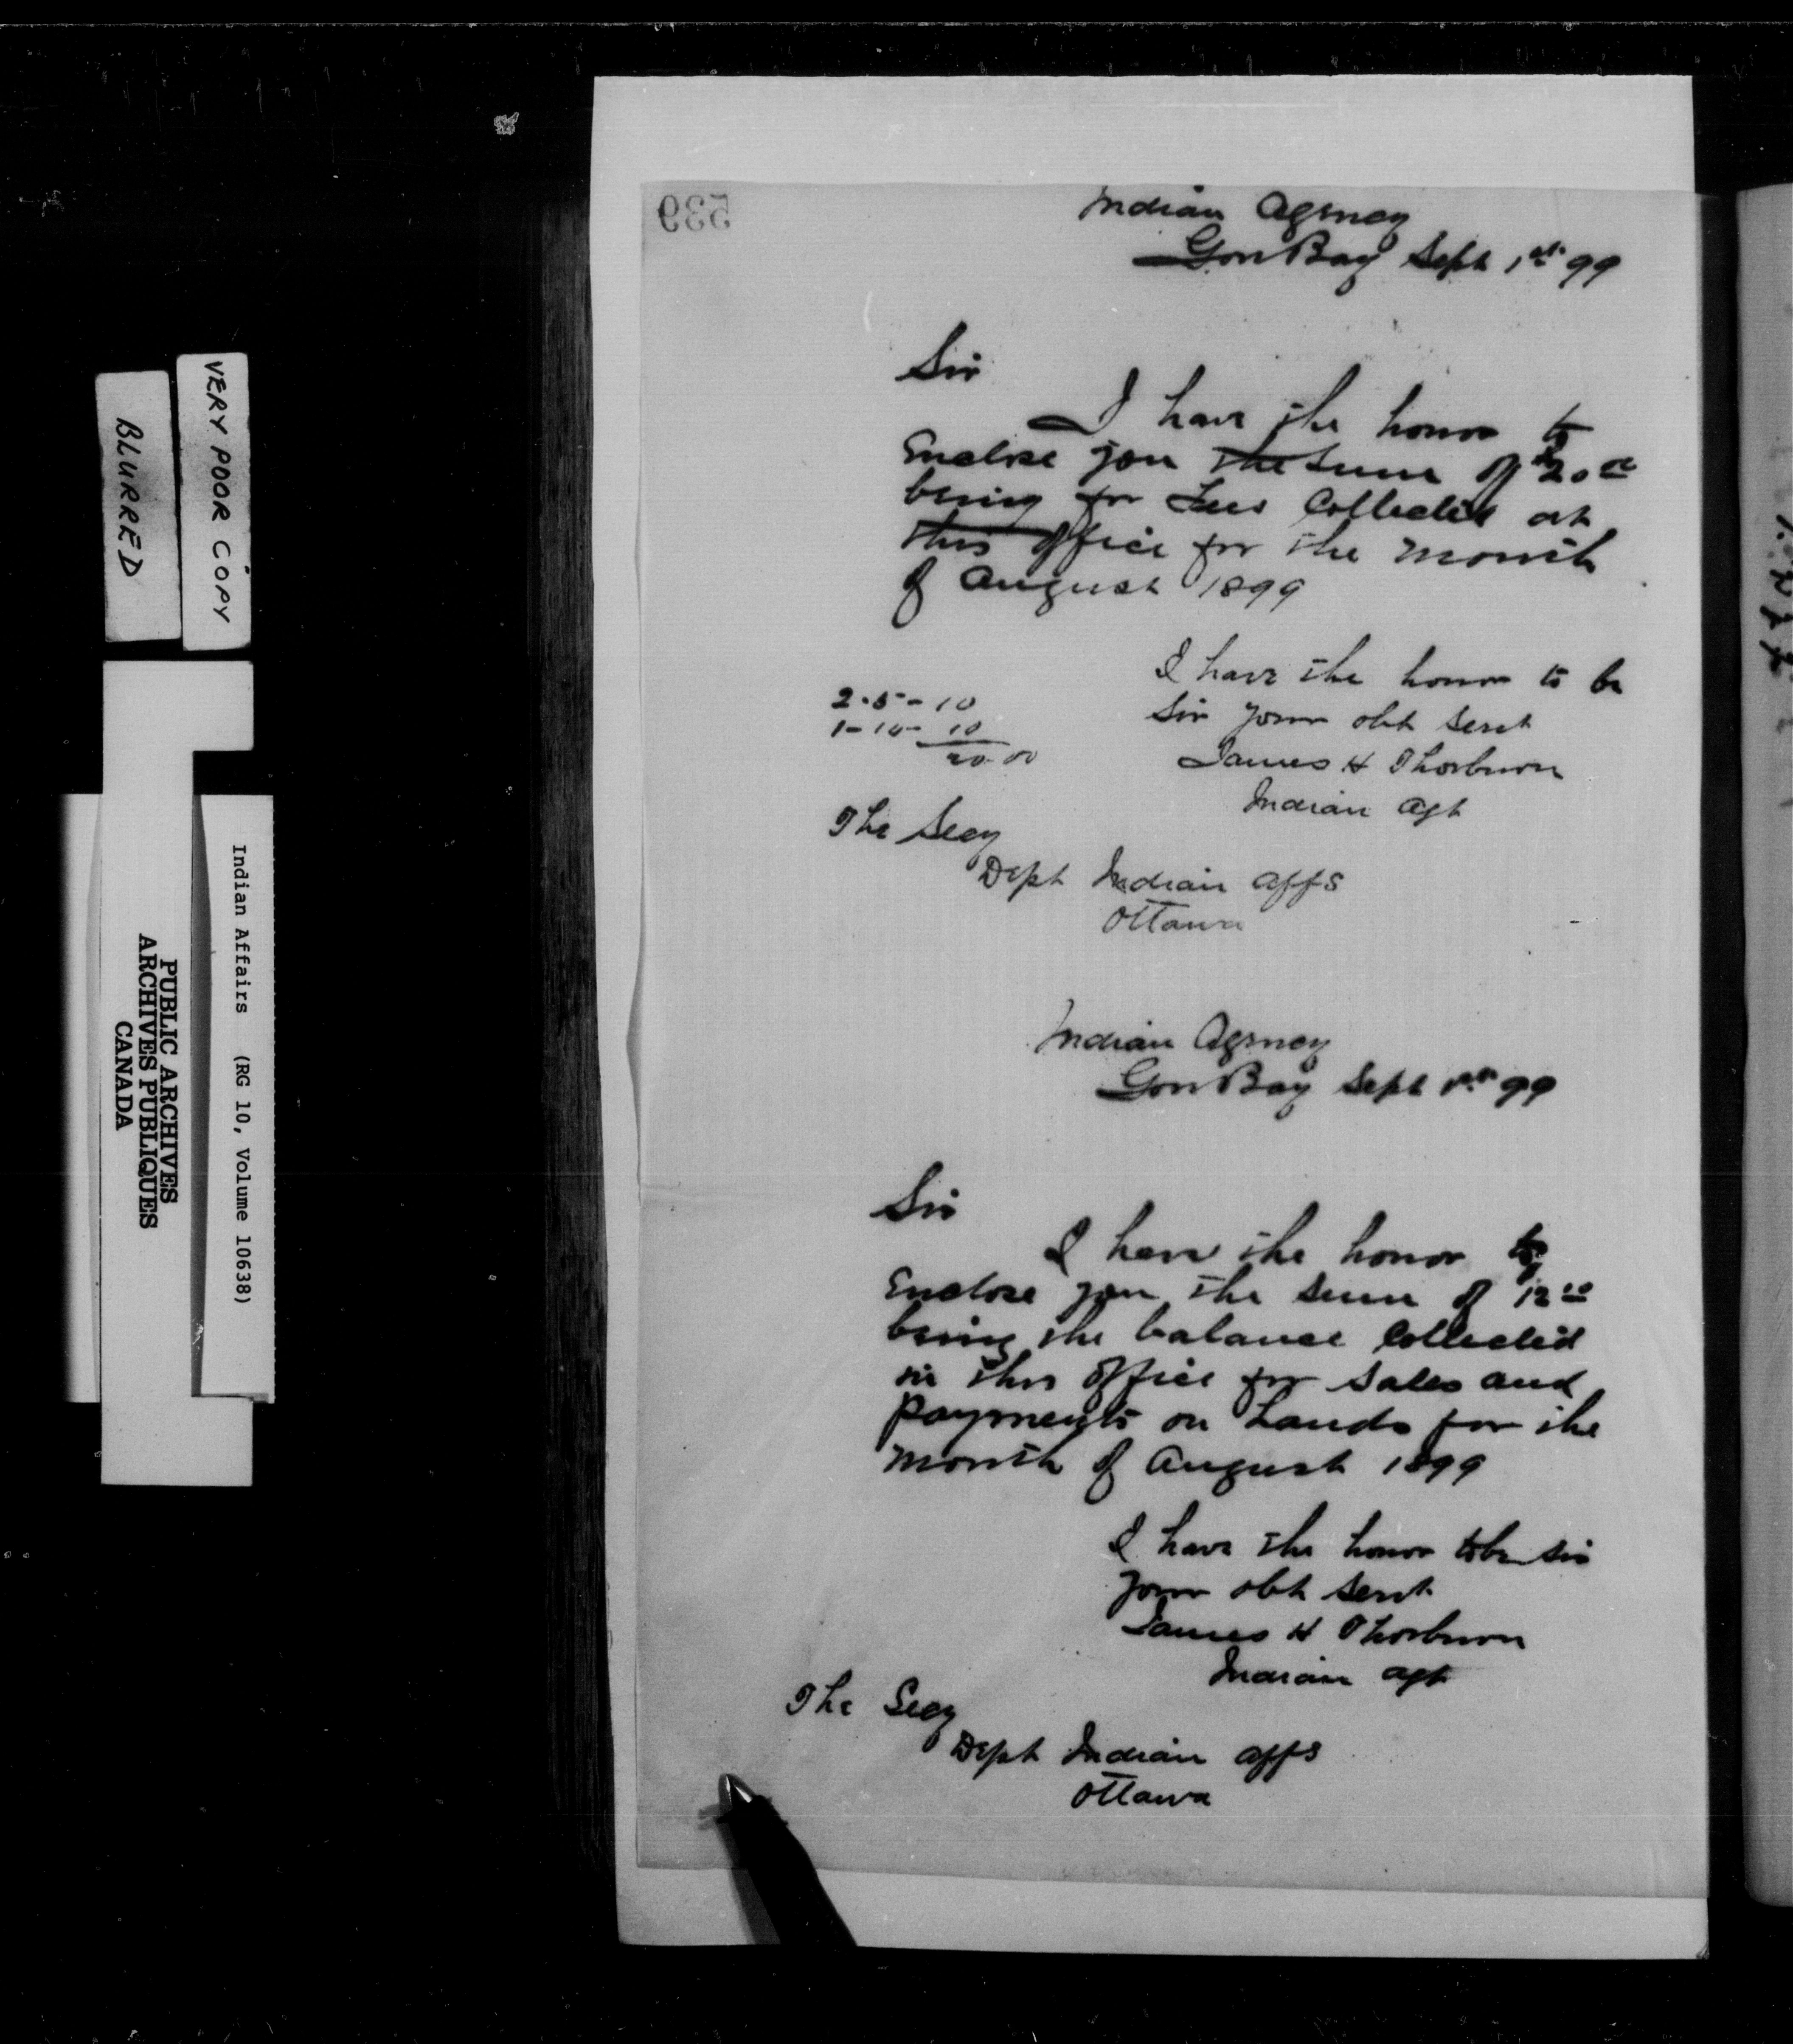 539
Indian Agency
Gore Bay Sept 1st 99
Sir
I have the honor to
Enclose you the sum of $20 00
being for Fees Collected at
this office for the month
of August 1899
I have the honor to be
Sir your obt Servt
James H Thorburn
Indian Agt
2-5-10
1-10-10
20.00
The Secy
Dept Indian Affs
Ottawa
Indian Agency
Gore Bay Sept 1st 99
Sir
I have the honor to
Enclose you the sum of 12 10
being the balance Collected
in this office for Sales and
payments on Lands for the
month of August 1899
I have the honor to be Sir
your obt Servt
James H Thorburn
Indian Agt
The Secy
Dept Indian Affs
Ottawa
VERY POOR COPY
BLURRED
Indian Affairs (RG 10, Volume 10638)
PUBLIC ARCHIVES
ARCHIVES PUBLIQUES
CANADA